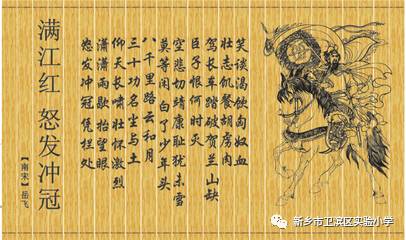 满江红 怒发冲冠
【南宋】岳飞
怒发冲冠凭栏处
潇潇雨歇抬望眼
仰天长啸壮怀激烈
三十功名尘与土
八千里路云和月
莫等闲白了少年头
空悲切靖康耻犹未雪
臣子恨何时灭
驾长车踏破贺兰山缺
壮志饥餐胡虏肉
笑谈渴饮匈奴血
新乡市卫滨区实验小学